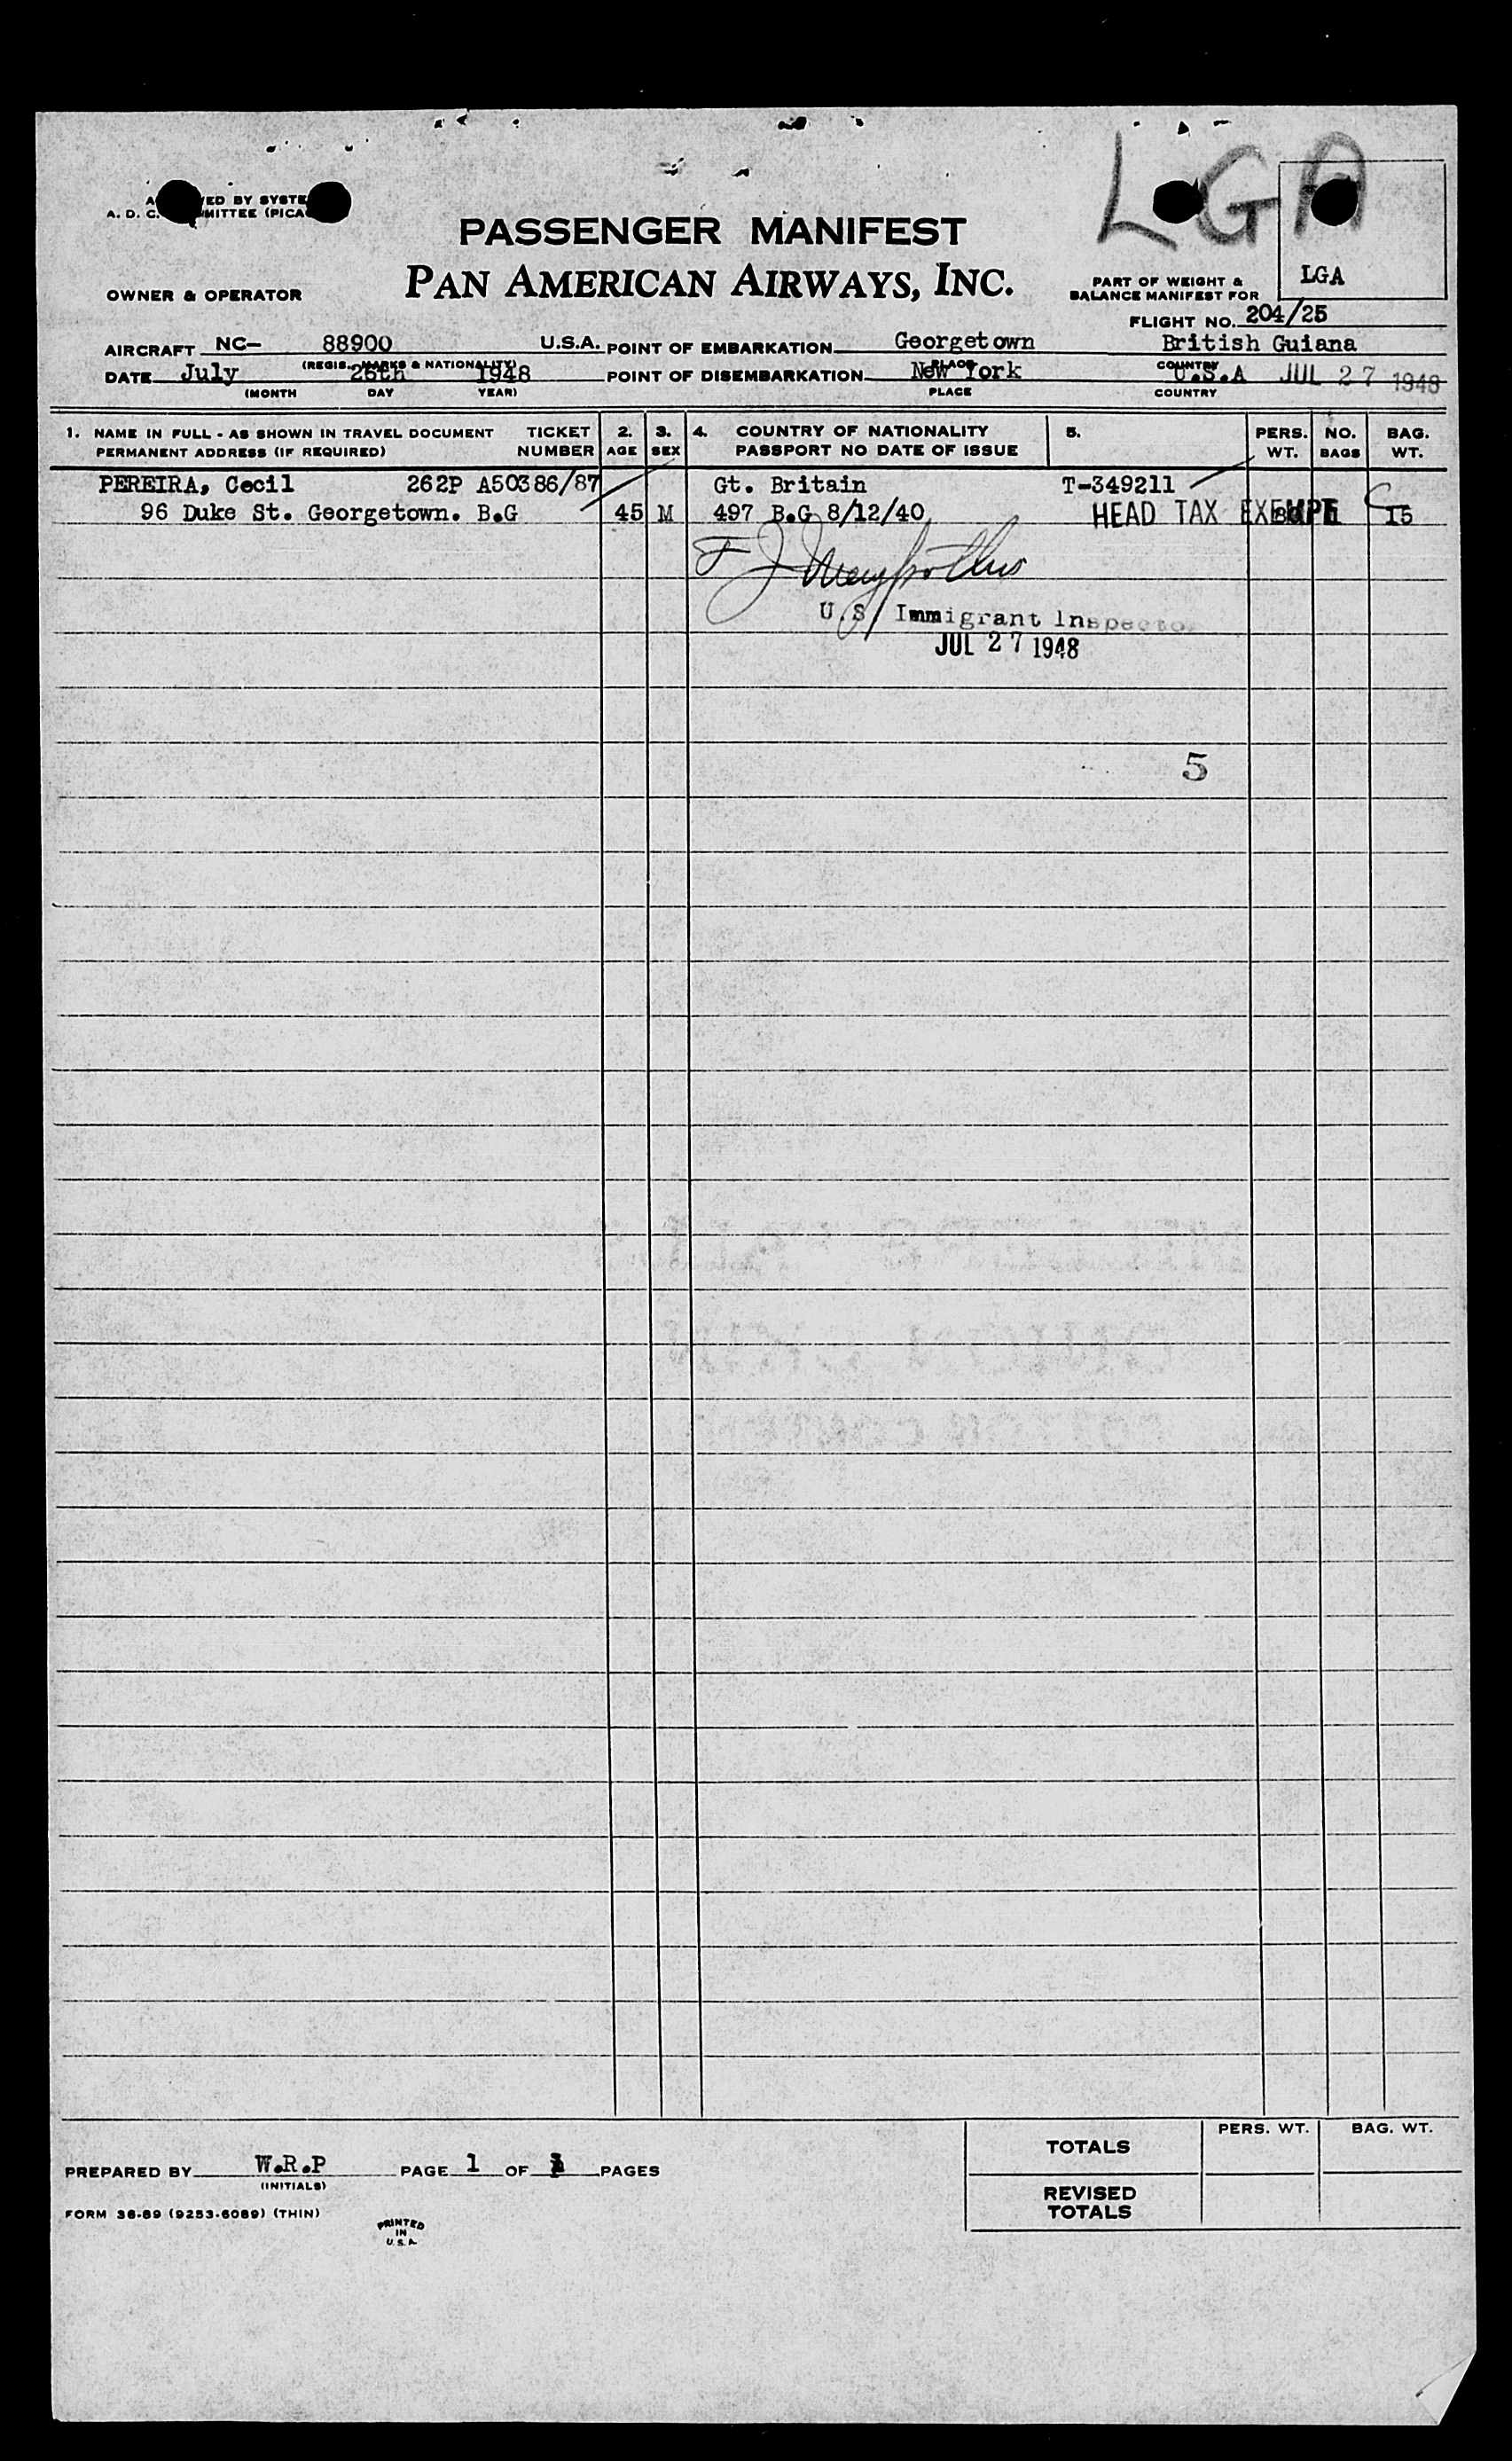 LGA
ED BY SYSTE
A. D. C. MITTEE (PICA
PASSENGER MANIFEST
OWNER & OPERATOR
PAN AMERICAN AIRWAYS, INC.
PART OF WEIGHT &
BALANCE MANIFEST FOR
LGA
FLIGHT NO. 204/25
AIRCRAFT NC- 88900 U.S.A. POINT OF EMBARKATION Georgetown British Guiana
(REGIS. MARKS & NATIONALITY) PLACE COUNTRY
DATE July 26th 1948 POINT OF DISEMBARKATION New York U.S.A JUL 27 1948
(MONTH DAY YEAR) PLACE COUNTRY
1. NAME IN FULL - AS SHOWN IN TRAVEL DOCUMENT TICKET 2. 3. 4. COUNTRY OF NATIONALITY 5. PERS. NO. BAG.
PERMANENT ADDRESS (IF REQUIRED) NUMBER AGE SEX PASSPORT NO DATE OF ISSUE WT. BAGS WT.
PEREIRA, Cecil 262P A50386/87 Gt. Britain T-349211
96 Duke St. Georgetown. B.G 45 M 497 B.G 8/12/40 HEAD TAX EXEMPT 15
U.S. Immigrant Inspector
JUL 27 1948
5
TOTALS PERS. WT. BAG. WT.
PREPARED BY W.R.P PAGE 1 OF PAGES
(INITIALS)
REVISED
TOTALS
FORM 36-89 (9253-6089) (THIN)
PRINTED
IN
U.S.A.